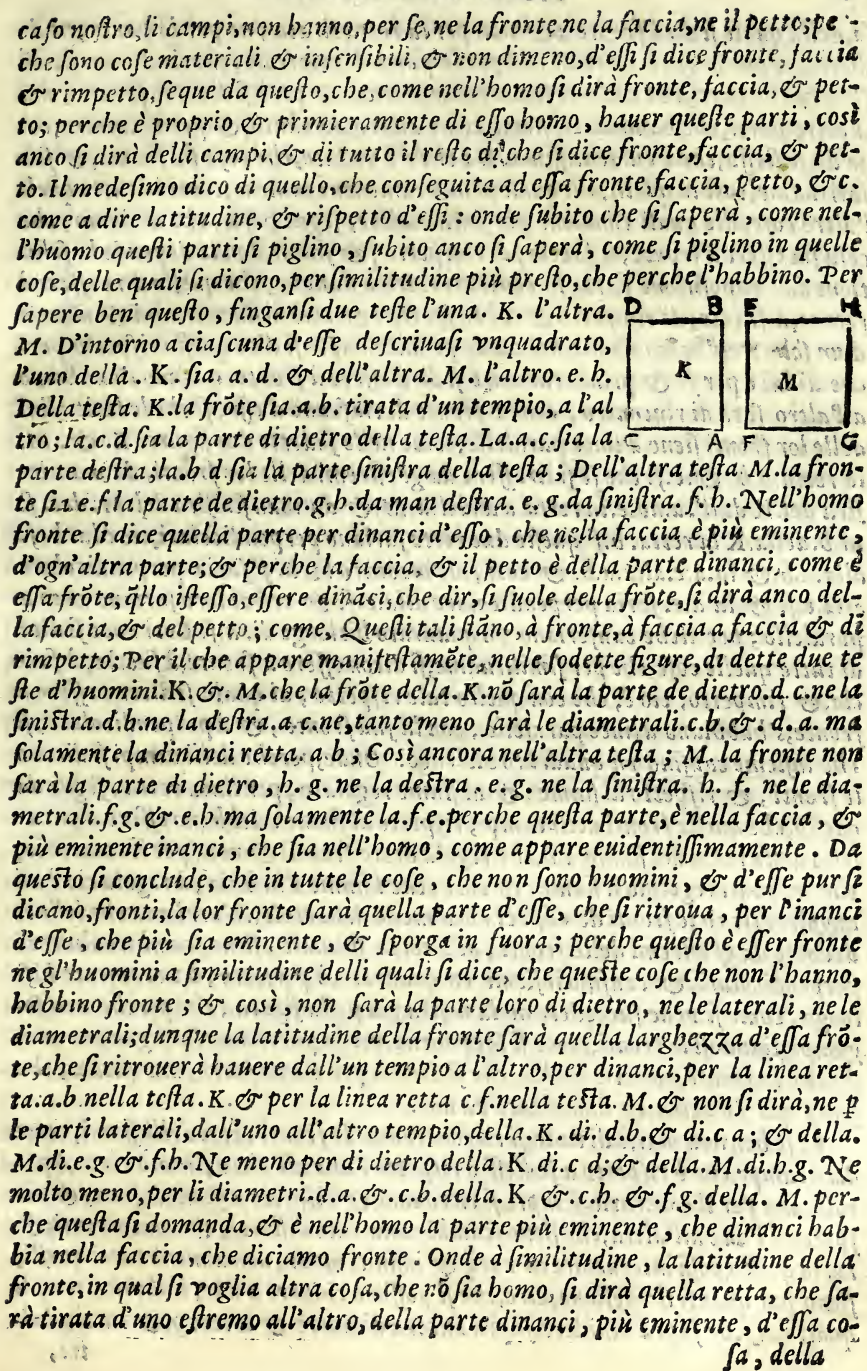 caso nostro, li campi, non hanno, per se, ne la fronte ne la faccia, ne il petto; pe-
che sono cose materiali & insensibili, & non dimeno, d'essi si dice fronte, faccia
& rimpetto, seque da questo, che, come nell'homo si dirà fronte, faccia, & pet-
to; perche è proprio & primieramente di esso homo, hauer queste parti, così
anco si dirà delli campi, & di tutto il resto di che si dice fronte, faccia, & pet-
to. Il medesimo dico di quello, che conseguita ad essa fronte, faccia, petto, &c.
come a dire latitudine, & rispetto d'essi: onde subito che si saperà, come nel-
l'huomo questi parti si piglino, subito anco si saperà, come si piglino in quelle
cose, delle quali si dicono, per similitudine più presto, che perche l'habbino. Per
sapere ben questo, fingansi due teste l'una. K. l'altra.
M. D'intorno a ciascuna d'esse descriuasi vnquadrato,
l'uno della. K. sia a. d. & dell'altra. M. l'altro. e. h.
Della testa. K. la frōte sia. a. b. tirata d'un tempio, a l'al
tro; la. c. d. sia la parte di dietro della testa. La. a. c. sia la
D B E H
K M
C A F G
parte destra; la. b d sia la parte sinistra della testa; Dell'altra testa M. la fron-
te sia e. f la parte de dietro. g. h. da man destra. e. g. da sinistra. f. h. Nell'homo
fronte si dice quella parte per dinanci d'esso, che nella faccia è più eminente,
d'ogn'altra parte; & perche la faccia, & il petto è della parte dinanci, come è
essa frōte, q̄llo istesso, essere dināci, che dir, si suole della frōte, si dirà anco del-
la faccia, & del petto; come, Questi tali stāno, à fronte, à faccia a faccia & di
rimpetto; Per il che appare manifestamēte, nelle sodette figure, di dette due te
ste d'huomini. K. &. M. che la frōte della. K. nō sarà la parte de dietro. d. c. ne la
sinistra. d. b. ne la destra. a. c. ne, tanto meno sarà le diametrali. c. b. &. d. a. ma
solamente la dinanci retta. a. b; Così ancora nell'altra testa; M. la fronte non
sarà la parte di dietro, h. g. ne la destra. e. g. ne la sinistra. h. f. ne le dia-
metrali. f. g. &. e. h. ma solamente la. f. e. perche questa parte, è nella faccia, &
più eminente inanci, che sia nell'homo, come appare euidentissimamente. Da
questo si conclude, che in tutte le cose, che non sono huomini, & d'esse pur si
dicano, fronti, la lor fronte sarà quella parte d'esse, che si ritroua, per l'inanci
d'esse, che più sia eminente, & sporga in fuora; perche questo è esser fronte
ne gl'huomini a similitudine delli quali si dice, che queste cose che non l'hanno,
habbino fronte; & così, non sarà la parte loro di dietro, ne le laterali, ne le
diametrali; dunque la latitudine della fronte sarà quella larghezza d'essa frō-
te, che si ritrouerà hauere dall'un tempio a l'altro, per dinanci, per la linea ret-
ta. a. b nella testa. K. & per la linea retta c. f. nella testa. M. & non si dirà, ne p
le parti laterali, dall'uno all'altro tempio, della. K. di. d. b. & di. c a; & della.
M. di. e. g. &. f. h. Ne meno per di dietro della. K di. c d; & della. M. di. h. g. Ne
molto meno, per li diametri. d. a. &. c. b. della. K &. c. h. &. f. g. della. M. per-
che questa si domanda, & è nell'homo la parte più eminente, che dinanci hab-
bia nella faccia, che diciamo fronte. Onde à similitudine, la latitudine della
fronte, in qual si voglia altra cosa, che nō sia homo, si dirà quella retta, che sa-
rà tirata d'uno estremo all'altro, della parte dinanci, più eminente, d'essa co-
sa, della